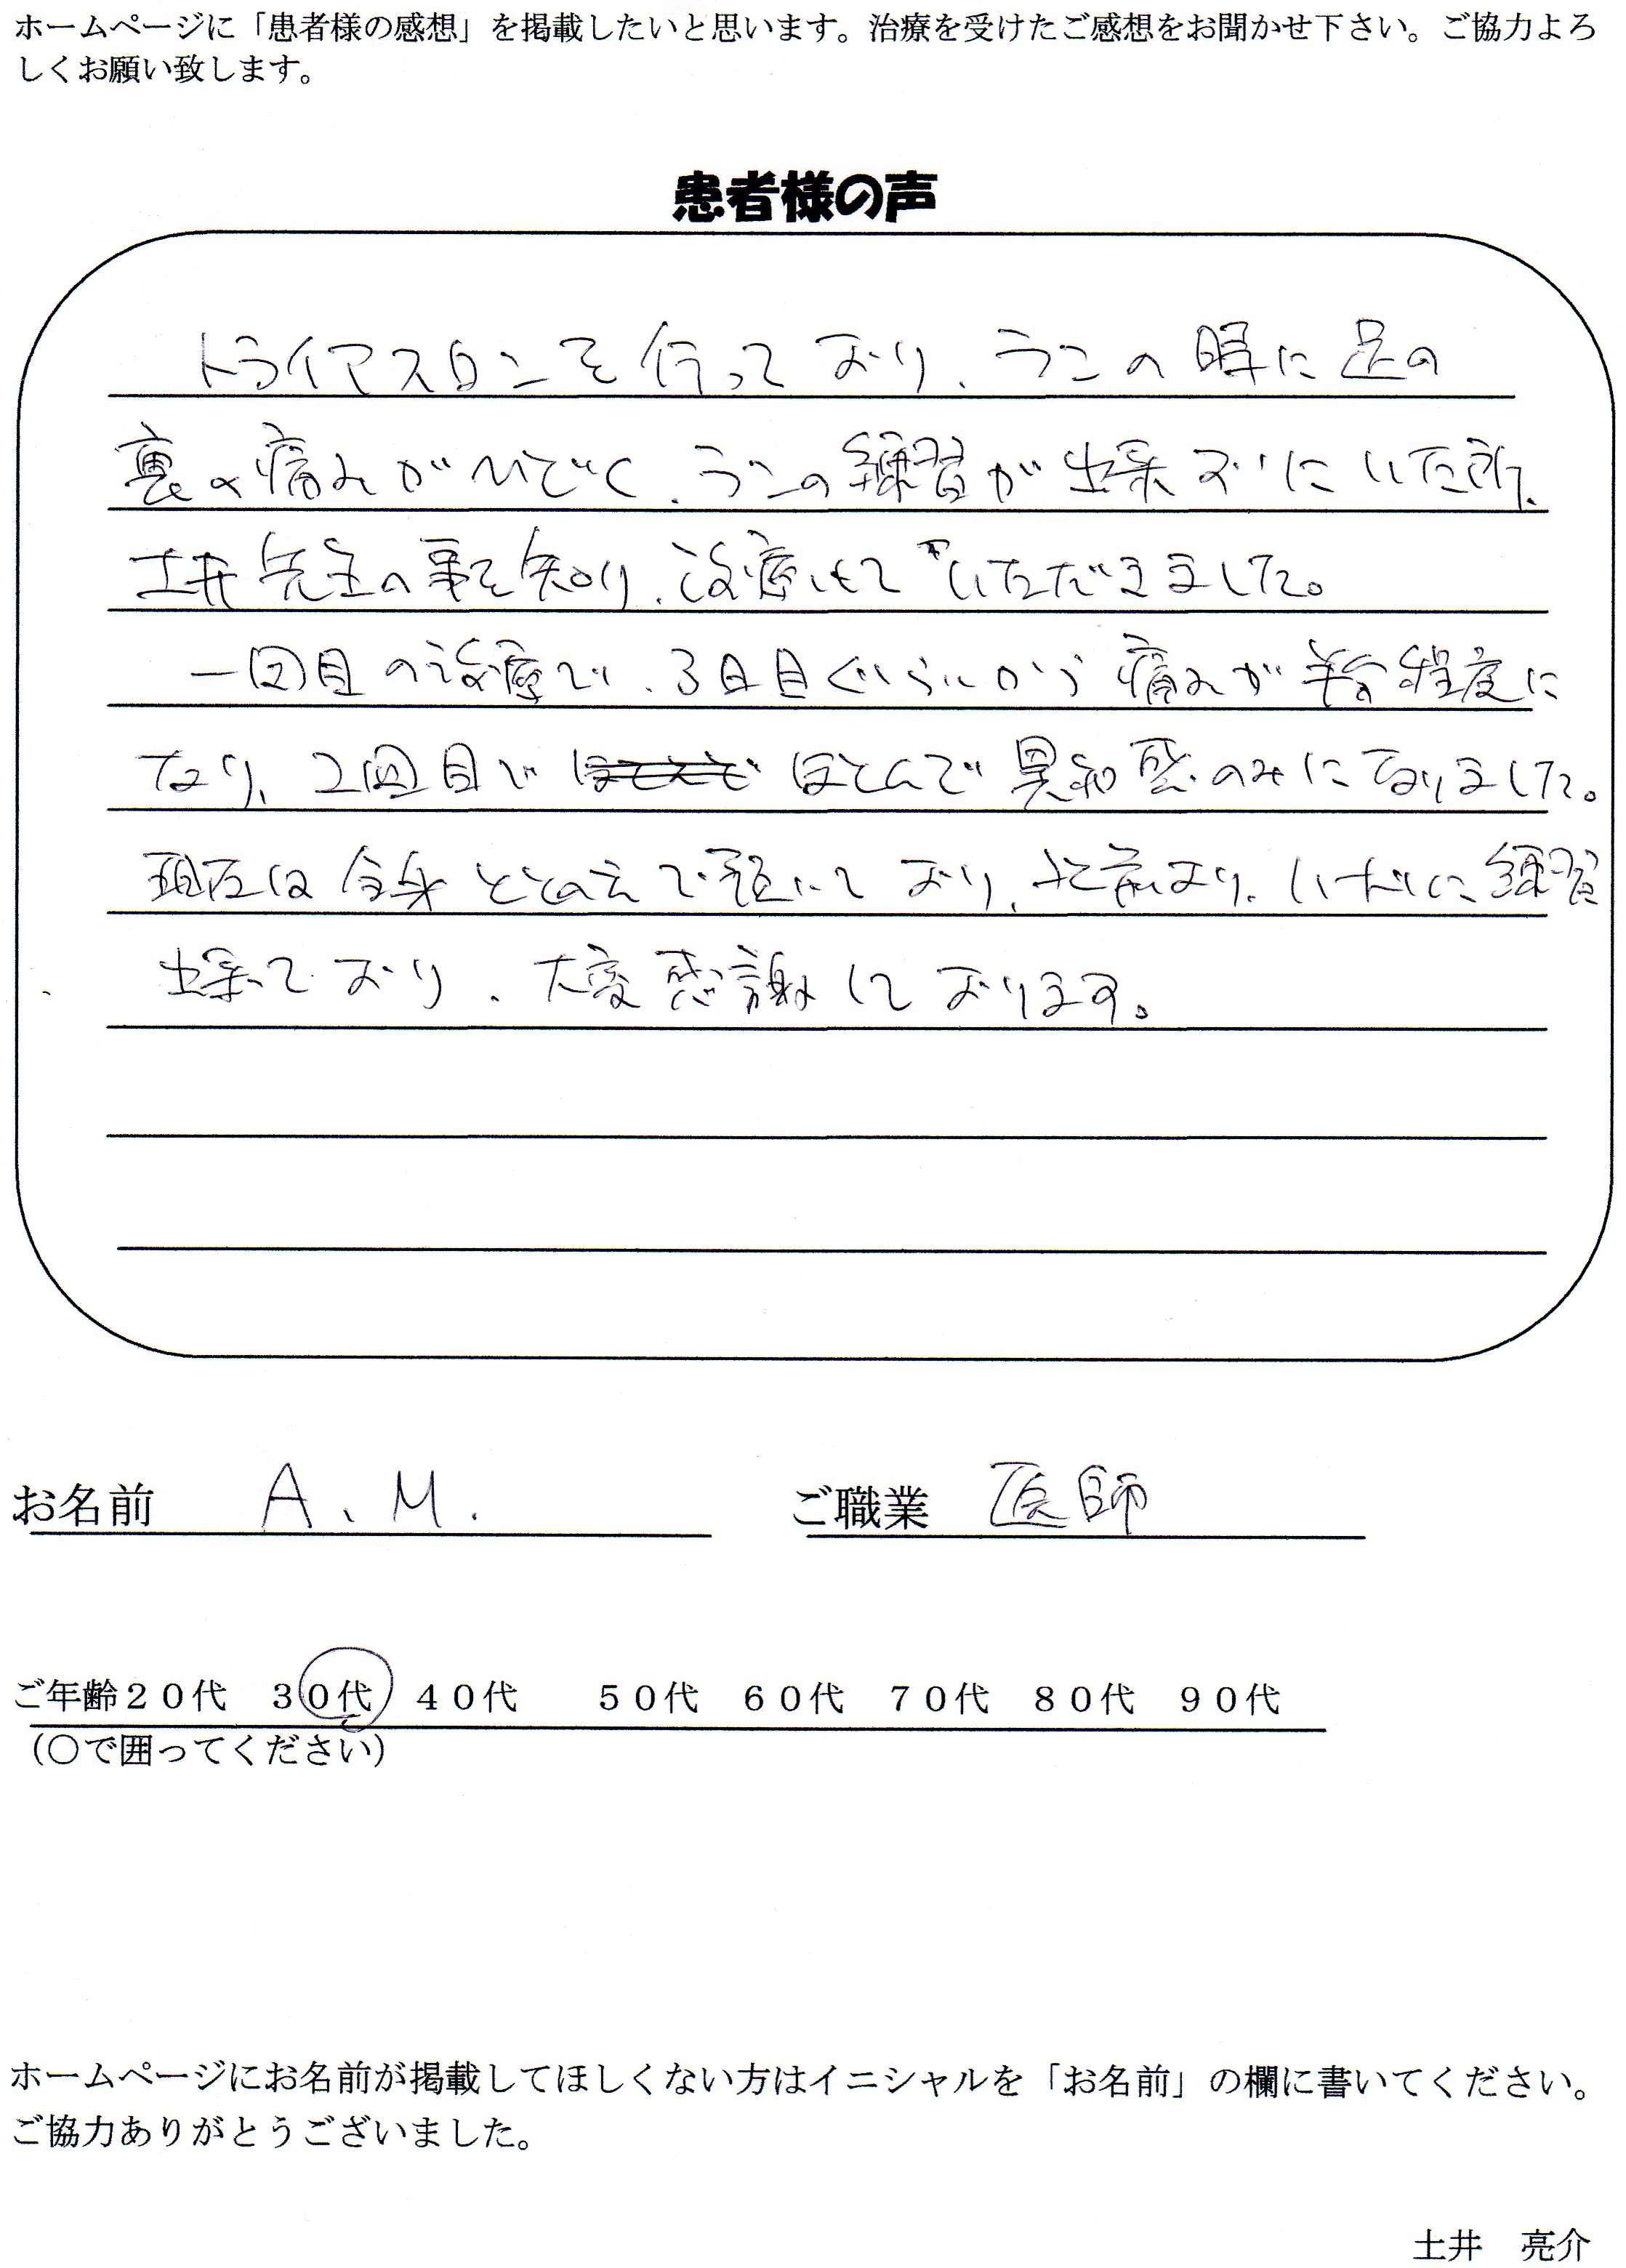 ホームページに「患者様の感想」を掲載したいと思います。治療を受けたご感想をお聞かせ下さい。ご協力よろ
しくお願い致します。
患者様の声
トライアスロンを行っており、ランの時に足の
裏の痛みがひどく、ランの練習が出来ずにいた所、
土井先生の事を知り、治療していただきました。
一回目の治療で、3日目ぐらいから痛みが半分程度に
なり、2回目で ほとんで異和感のみになりました。
現在は全身ととのえて頂いており、以前より、いたずに練習
出来ており、大変感謝しております。
お名前 A.M. ご職業 医師
ご年齢２０代 ３０代 ４０代 ５０代 ６０代 ７０代 ８０代 ９０代
（○で囲ってください）
ホームページにお名前が掲載してほしくない方はイニシャルを「お名前」の欄に書いてください。
ご協力ありがとうございました。
土井 亮介